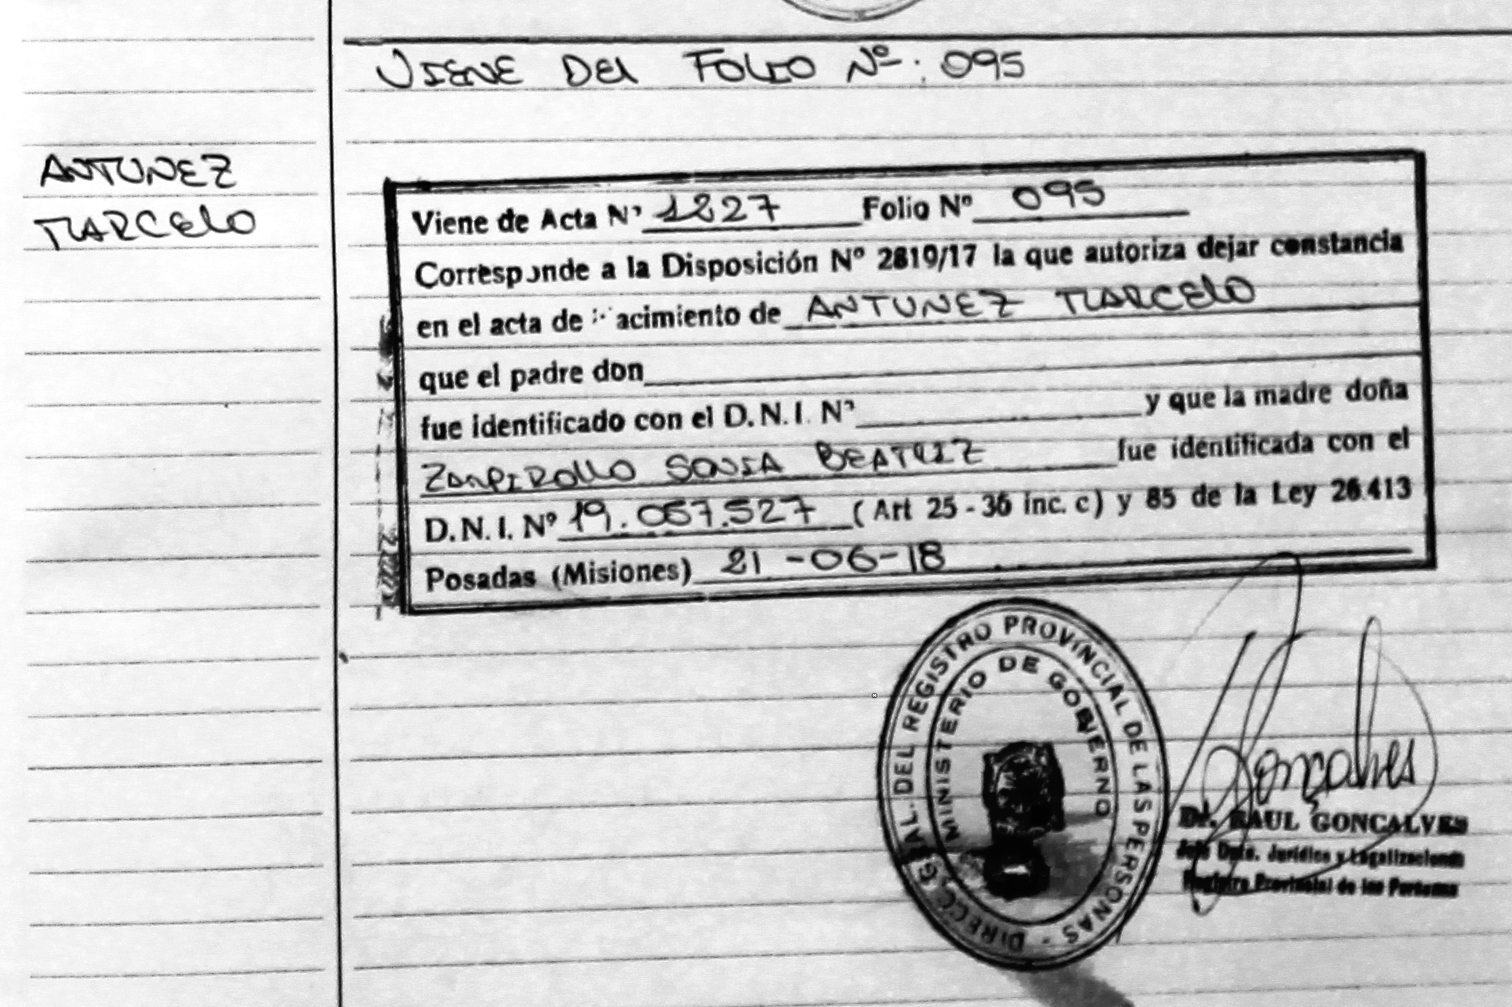 VIENE DEL FOLIO Nº: 095
ANTUNEZ
MARCELO
Viene de Acta Nº 1227 Folio Nº 095
Corresponde a la Disposición Nº 2819/17 la que autoriza dejar constancia
en el acta de nacimiento de ANTUNEZ MARCELO
que el padre don
fue identificado con el D.N.I. Nº y que la madre doña
ZAMPIROLLO SONIA BEATRIZ fue identificada con el
D.N.I. Nº 19.057.527 (Art 25 - 36 inc. c) y 85 de la Ley 26.413
Posadas (Misiones) 21-06-18
DIRECC. GRAL. DEL REGISTRO PROVINCIAL DE LAS PERSONAS -
MINISTERIO DE GOBIERNO
Gonçalves
Dr. RAUL GONCALVES
Jefe Dpto. Jurídico y Legalizaciones
Registro Provincial de las Personas